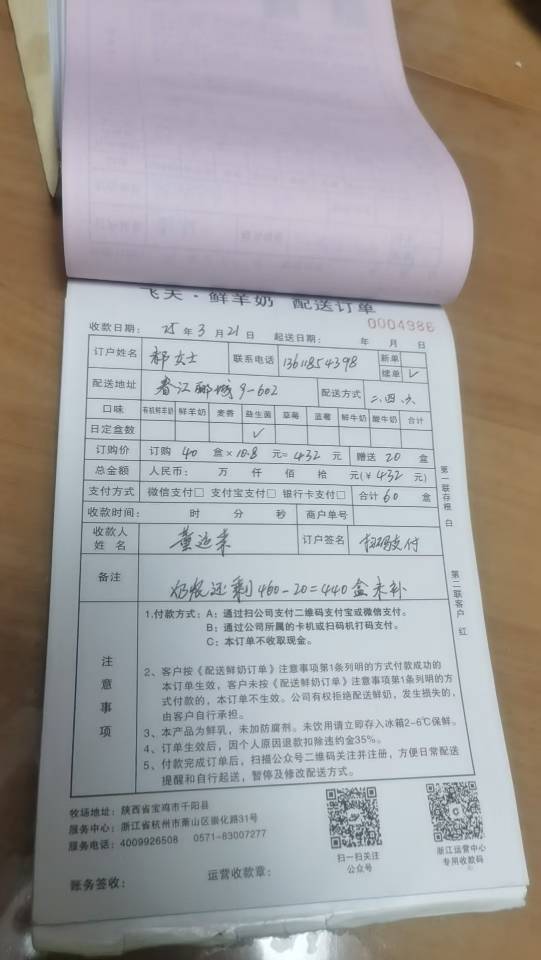 飞天·鲜羊奶 配送订单
0004986
收款日期: 25 年 3 月 21 日 起送日期: 年 月 日
订户姓名 郝女士 联系电话 13611854398 新单
续单 ✓
配送地址 春江郦城9-602 配送方式 二.四.六
口味 有机鲜羊奶 鲜羊奶 麦香 益生菌 草莓 蓝莓 鲜牛奶 酸牛奶 合计
日定盒数 ✓
订购价 订购 40 盒×10.8 元=432 元 赠送 20 盒
总金额 人民币: 万 仟 佰 拾 元(¥432 元)
支付方式 微信支付□ 支付宝支付□ 银行卡支付□ 合计60 盒
收款时间: 时 分 秒 商户单号
收款人姓名 董 订户签名 扫码支付
备注 奶 还剩460-20=440盒未补
第一联存根 白
第二联客户 红
注意事项
1.付款方式: A: 通过扫公司支付二维码支付宝或微信支付。
B: 通过公司所属的卡机或扫码机打码支付。
C: 本订单不收取现金。
2、客户按《配送鲜奶订单》注意事项第1条列明的方式付款成功的
本订单生效，客户未按《配送鲜奶订单》注意事项第1条列明的方
式付款的，本订单不生效。公司有权拒绝配送鲜奶，发生损失的，
由客户自行承担。
3、本产品为鲜乳，未加防腐剂。未饮用请立即存入冰箱2-6℃保鲜。
4、订单生效后，因个人原因退款扣除违约金35%。
5、付款完成订单后，扫描公众号二维码关注并注册，方便日常配送
提醒和自行起送，暂停及修改配送方式。
牧场地址: 陕西省宝鸡市千阳县
服务中心: 浙江省杭州市萧山区崇化路31号
服务电话: 4009926508 0571-83007277
扫一扫关注
公众号
浙江运营中心
专用收款码
账务签收: 运营收款章: